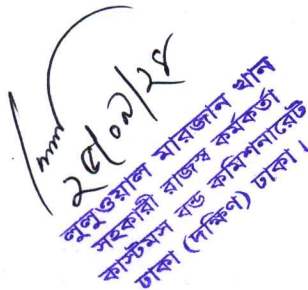 ২৫/০৯/২৪
লুলুওয়াল মারজান খান
সহকারী রাজস্ব কর্মকর্তা
কাস্টমস বন্ড কমিশনারেট
ঢাকা (দক্ষিণ) ঢাকা।